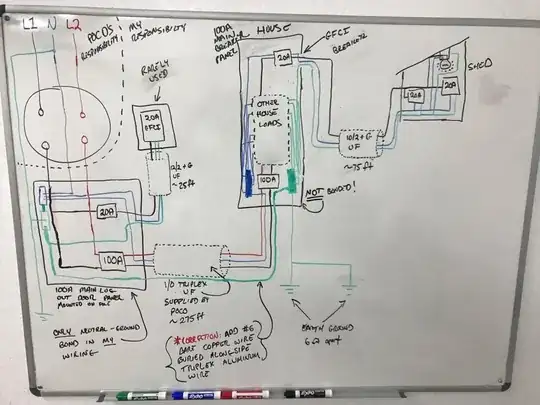 L1 N L2
POCO'S
RESPONSIBILITY
MY
RESPONSIBILITY
RARELY
USED
20A
GFCI
12/2+G
UF
~25ft
20A
100A
100A MAIN LUG
OUT DOOR PANEL
MOUNTED ON POLE
ONLY NEUTRAL-GROUND
BOND IN MY
WIRING
1/0 TRIPLEX
UF
SUPPLIED BY
POCO
~275ft
*CORRECTION: ADD #6
BARE COPPER WIRE
BURIED ALONGSIDE
TRIPLEX ALUMINUM
WIRE
100A
MAIN
BREAKER
PANEL
HOUSE
20A
GFCI
BREAKER
OTHER
HOUSE
LOADS
100A
NOT BONDED!
EARTH GROUND
6Ω apart
10/2+G
UF
~75ft
SHED
20A
20A
EXPO
EXPO
EXPO
EXPO